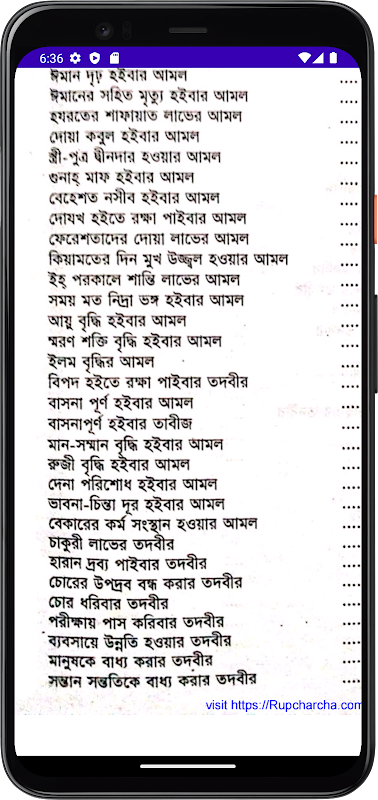 6:36
ঈমান দৃঢ় হইবার আমল ....
ঈমানের সহিত মৃত্যু হইবার আমল ....
হযরতের শাফায়াত লাভের আমল ....
দোয়া কবুল হইবার আমল ....
স্ত্রী-পুত্র দ্বীনদার হওয়ার আমল ....
গুনাহ্ মাফ হইবার আমল ....
বেহেশত নসীব হইবার আমল ....
দোযখ হইতে রক্ষা পাইবার আমল ....
ফেরেশতাদের দোয়া লাভের আমল ....
কিয়ামতের দিন মুখ উজ্জ্বল হওয়ার আমল ....
ইহ্ পরকালে শান্তি লাভের আমল ....
সময় মত নিদ্রা ভঙ্গ হইবার আমল ....
আয়ু বৃদ্ধি হইবার আমল ....
স্মরণ শক্তি বৃদ্ধি হইবার আমল ....
ইলম বৃদ্ধির আমল ....
বিপদ হইতে রক্ষা পাইবার তদবীর ....
বাসনা পূর্ণ হইবার আমল ....
বাসনাপূর্ণ হইবার তাবীজ ....
মান-সম্মান বৃদ্ধি হইবার আমল ....
রুজী বৃদ্ধি হইবার আমল ....
দেনা পরিশোধ হইবার আমল ....
ভাবনা-চিন্তা দূর হইবার আমল ....
বেকারের কর্ম সংস্থান হওয়ার আমল ....
চাকুরী লাভের তদবীর ....
হারান দ্রব্য পাইবার তদবীর ....
চোরের উপদ্রব বন্ধ করার তদবীর ....
চোর ধরিবার তদবীর ....
পরীক্ষায় পাস করিবার তদবীর ....
ব্যবসায়ে উন্নতি হওয়ার তদবীর ....
মানুষকে বাধ্য করার তদবীর ....
সন্তান সন্ততিকে বাধ্য করার তদবীর ....
visit https://Rupcharcha.com